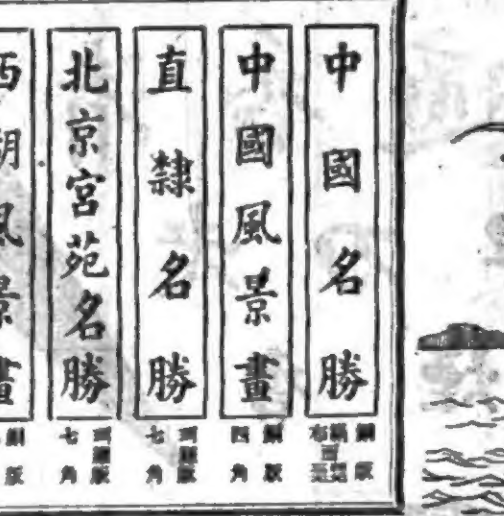 中國名勝
銅版
中國風景畫
銅版
四角
直隸名勝
七角
北京宮苑名勝
七角
西湖風景畫
銅版